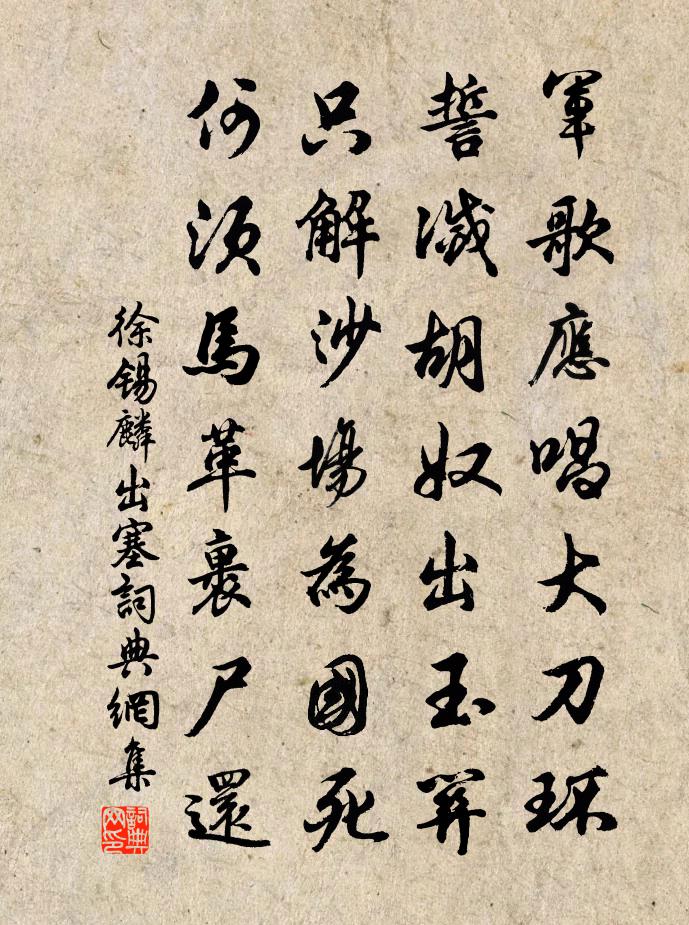 軍歌應唱大刀环
誓滅胡奴出玉関
只解沙場為國死
何須馬革裹尸還
徐錫麟出塞詞典網集
詞典网印